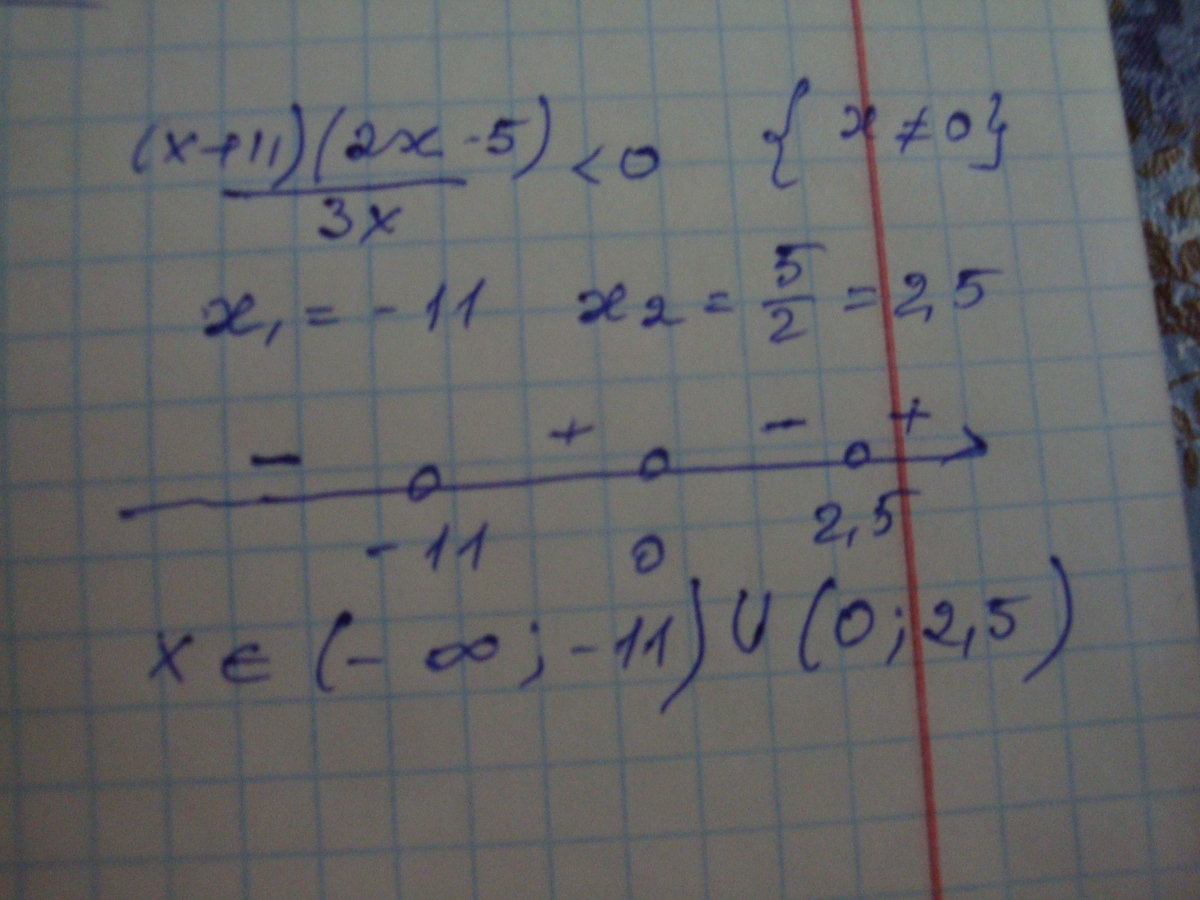 (x+11)(2x-5) < 0 { x ≠ 0 }
3x
x₁ = - 11 x₂ = 5/2 = 2,5
− + − +
- 11 0 2,5
x ∈ (- ∞ ; - 11) ∪ (0 ; 2,5)